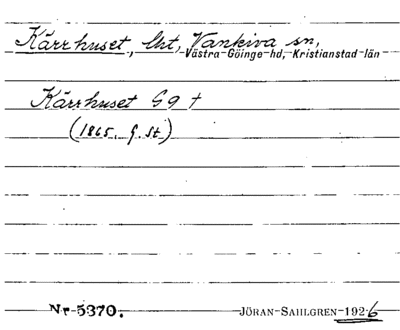 Kärrhuset, lht, Vankiva sn,
Västra Göinge hd, Kristianstad län
Kärrhuset G 9 †
(1865. G. St)
Nr 5370.
JÖRAN SAHLGREN 1926